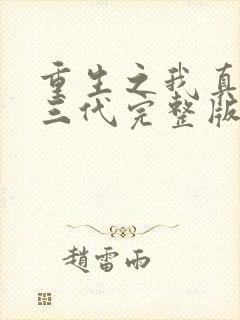 重生之我真
三代完整版
趙雷雨